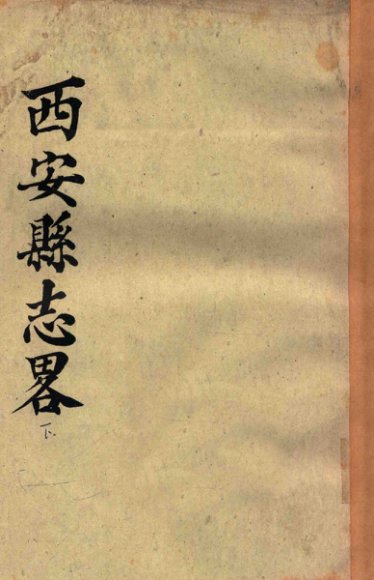 西安縣志畧
下